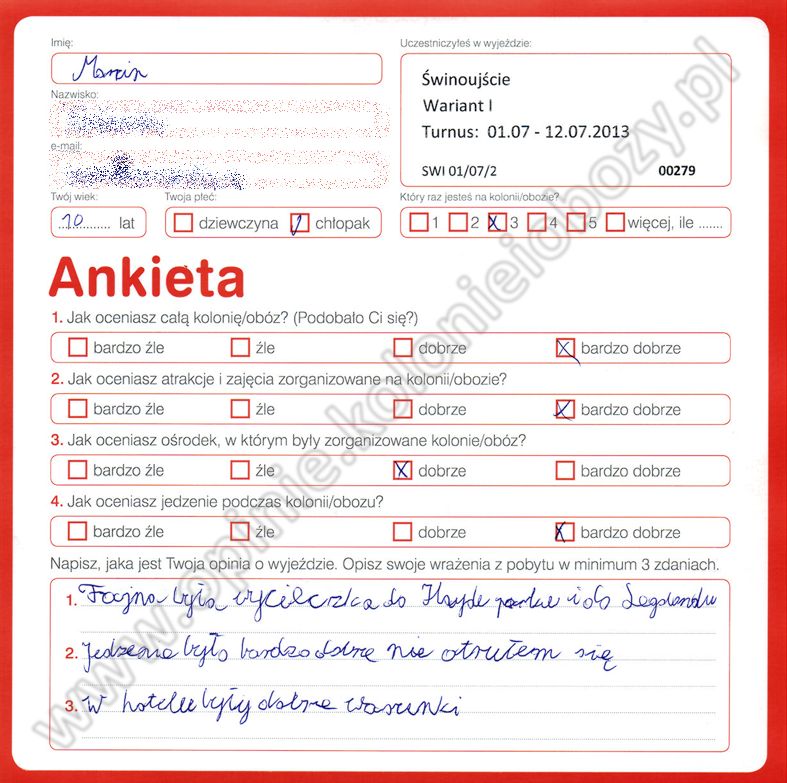 Imię:
Marcin
Nazwisko:
e-mail:
Uczestniczyłeś w wyjeździe:
Świnoujście
Wariant I
Turnus: 01.07 - 12.07.2013
SWI 01/07/2 00279
Twój wiek:
10 lat
Twoja płeć:
dziewczyna chłopak
Który raz jesteś na kolonii/obozie?
1 2 3 4 5 więcej, ile .......
Ankieta
1. Jak oceniasz całą kolonię/obóz? (Podobało Ci się?)
bardzo źle źle dobrze bardzo dobrze
2. Jak oceniasz atrakcje i zajęcia zorganizowane na kolonii/obozie?
bardzo źle źle dobrze bardzo dobrze
3. Jak oceniasz ośrodek, w którym były zorganizowane kolonie/obóz?
bardzo źle źle dobrze bardzo dobrze
4. Jak oceniasz jedzenie podczas kolonii/obozu?
bardzo źle źle dobrze bardzo dobrze
Napisz, jaka jest Twoja opinia o wyjeździe. Opisz swoje wrażenia z pobytu w minimum 3 zdaniach.
1. Fajna była do i do
2. Jedzenie było bardzo dobre nie otrułem się
3. W hotelu były dobre warunki
www.opinie.kolonieiobozy.pl